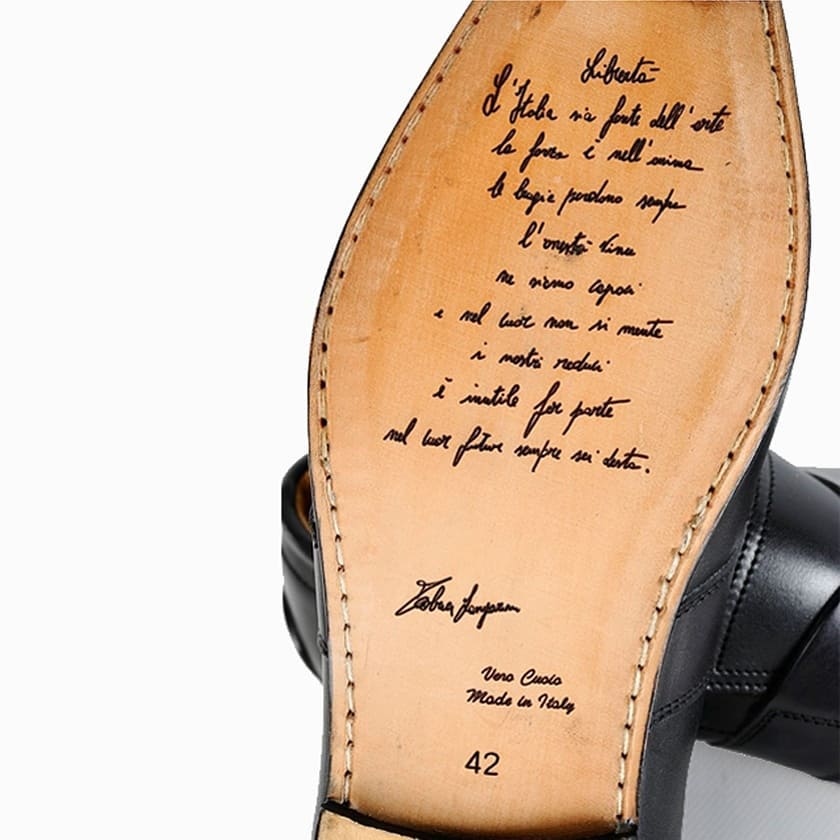 Libertà
L'Italia sia fonte dell'arte
la forza è nell'anima
le bugie perdono sempre
l'onestà vince
ne siamo capaci
e nel cuor non si mente
i nostri
è inutile far parte
nel cuor future sempre sei desta.
Vero Cuoio
Made in Italy
42